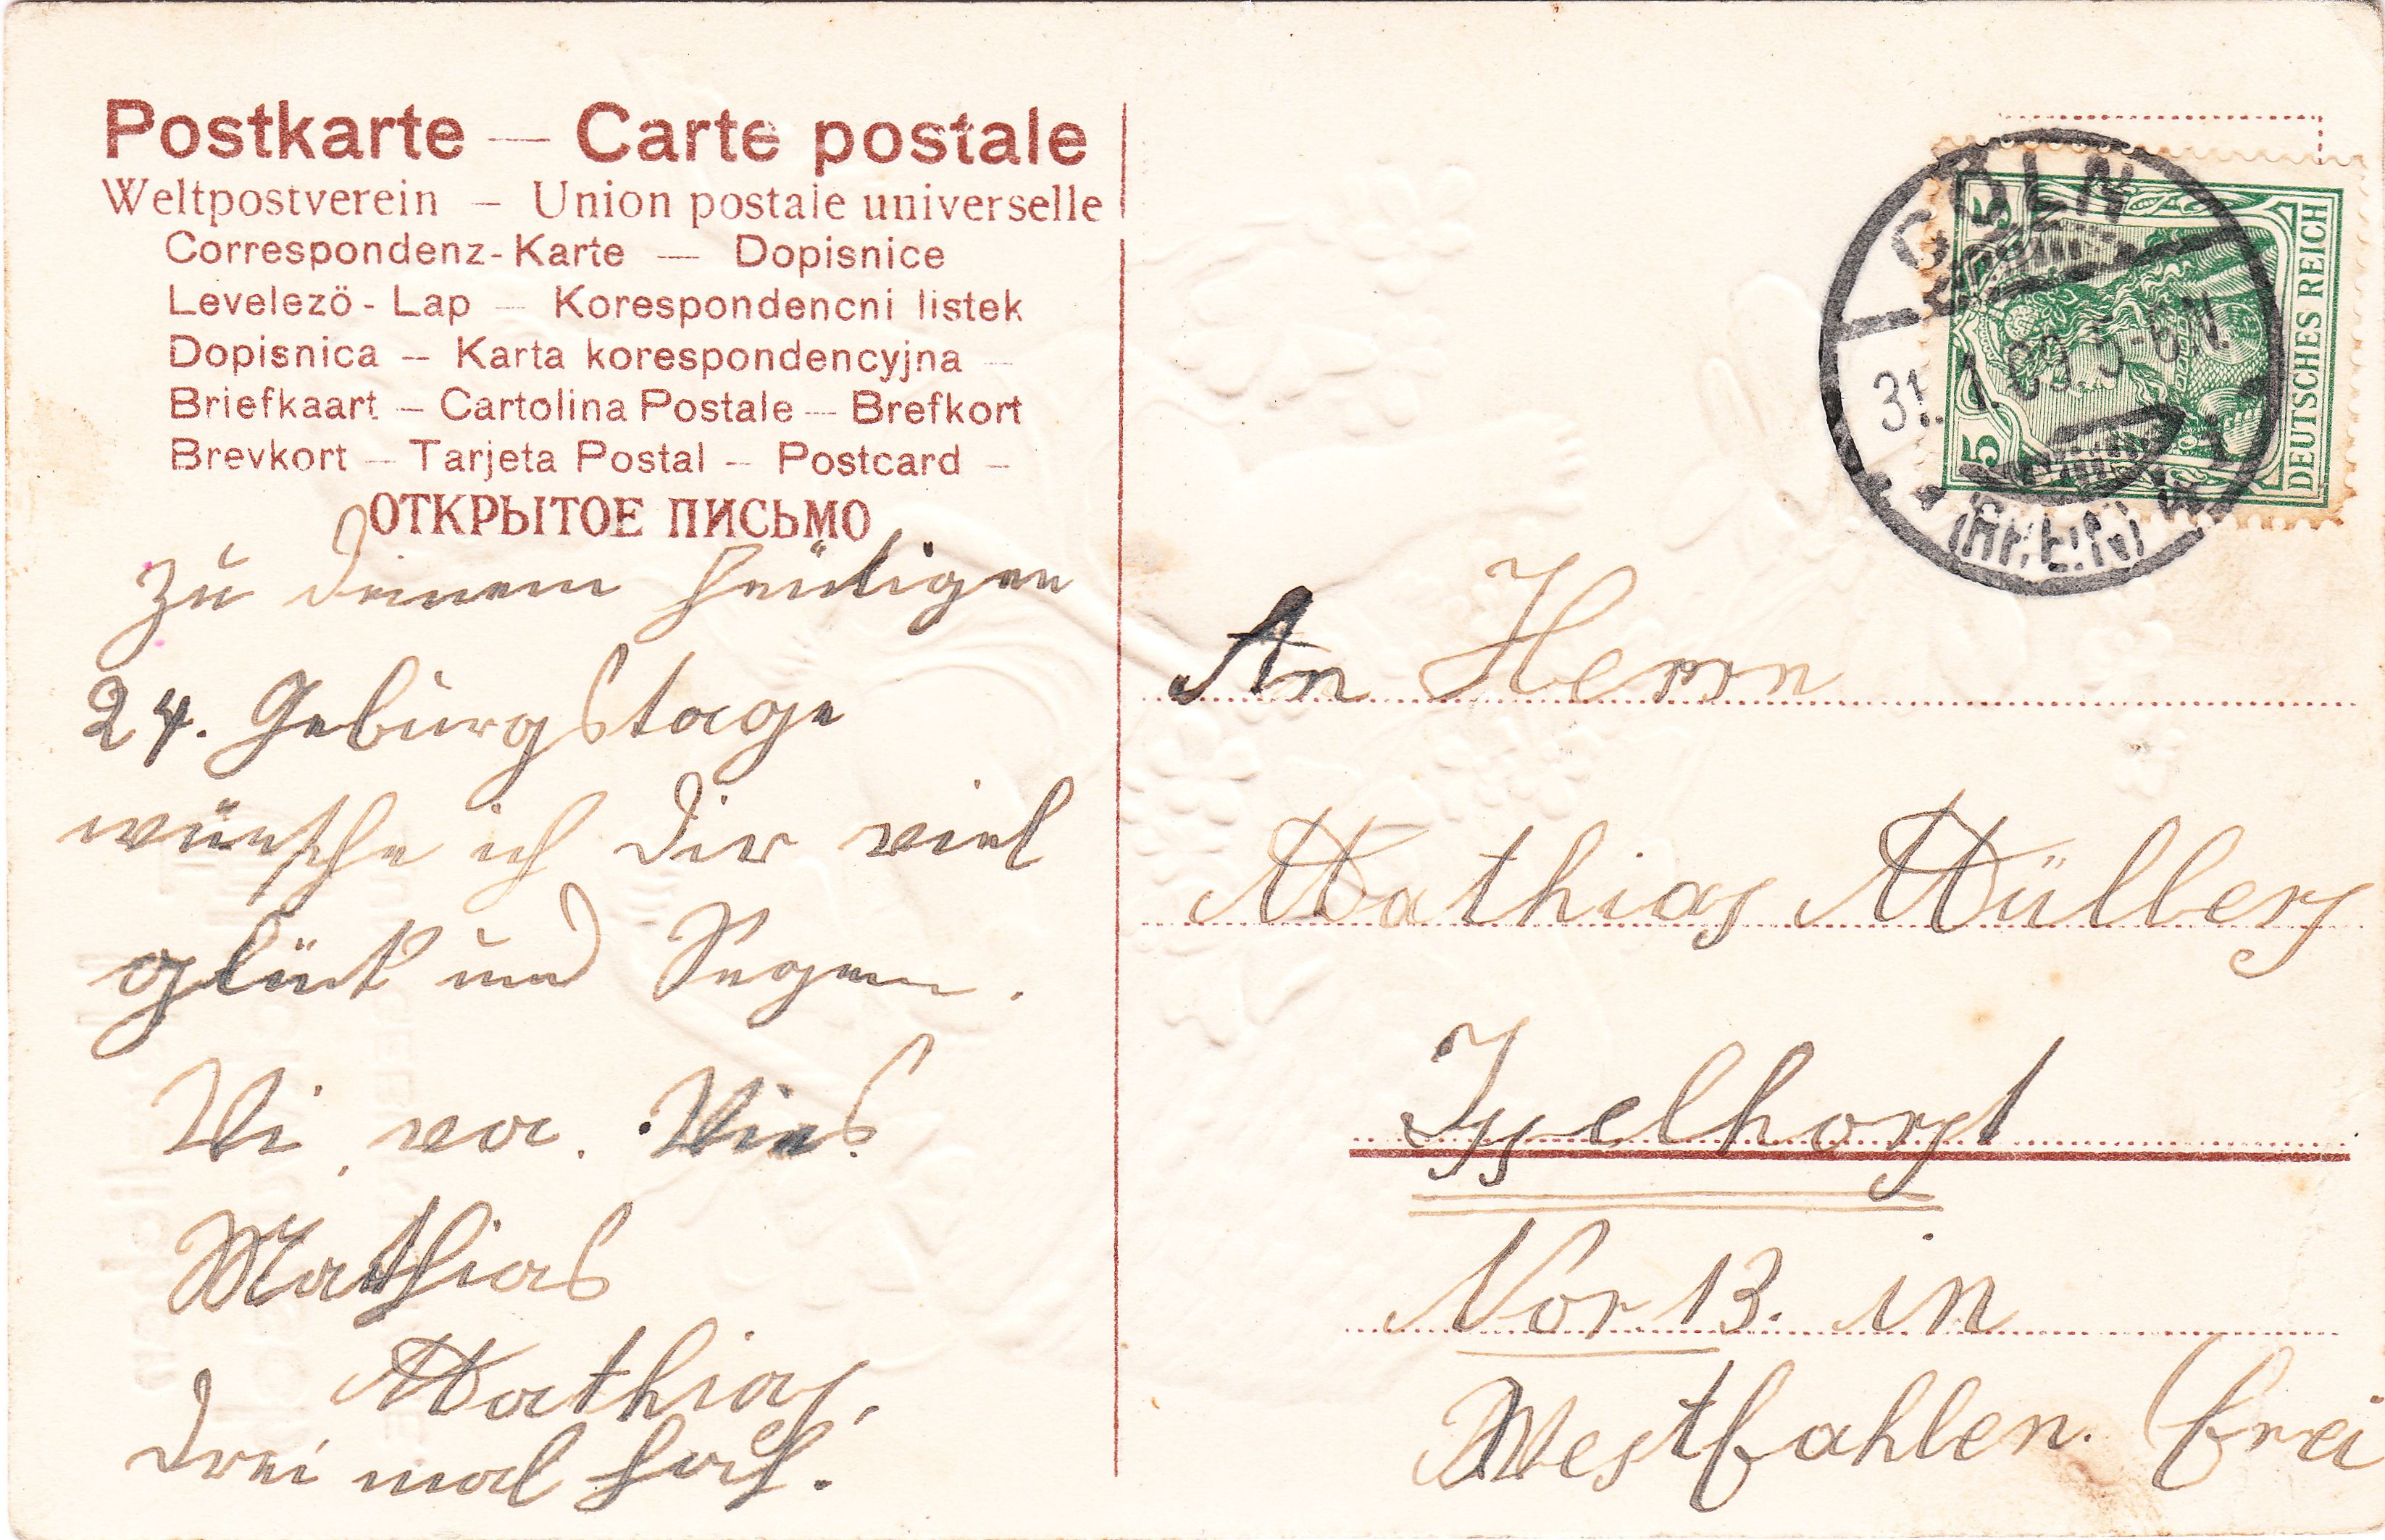 Postkarte — Carte postale
Weltpostverein — Union postale universelle
Correspondenz-Karte — Dopisnice
Levelezö - Lap — Korespondencni listek
Dopisnica — Karta korespondencyjna —
Briefkaart — Cartolina Postale — Brefkort
Brevkort — Tarjeta Postal — Postcard —
ОТКРЫТОЕ ПИСЬМО
zu deinem heutigen
24. Geburgstage
wünsche ich dir viel
glück und Segen.
Mathias
Mathias,
drei mal hoch.
CÖLN
31. 1.09. 5-6N
(RHEIN)
5
5
DEUTSCHES REICH
An Herrn
Mathias Mülbers
Isselhorst
Nor 13. in
Westfahlen. frei